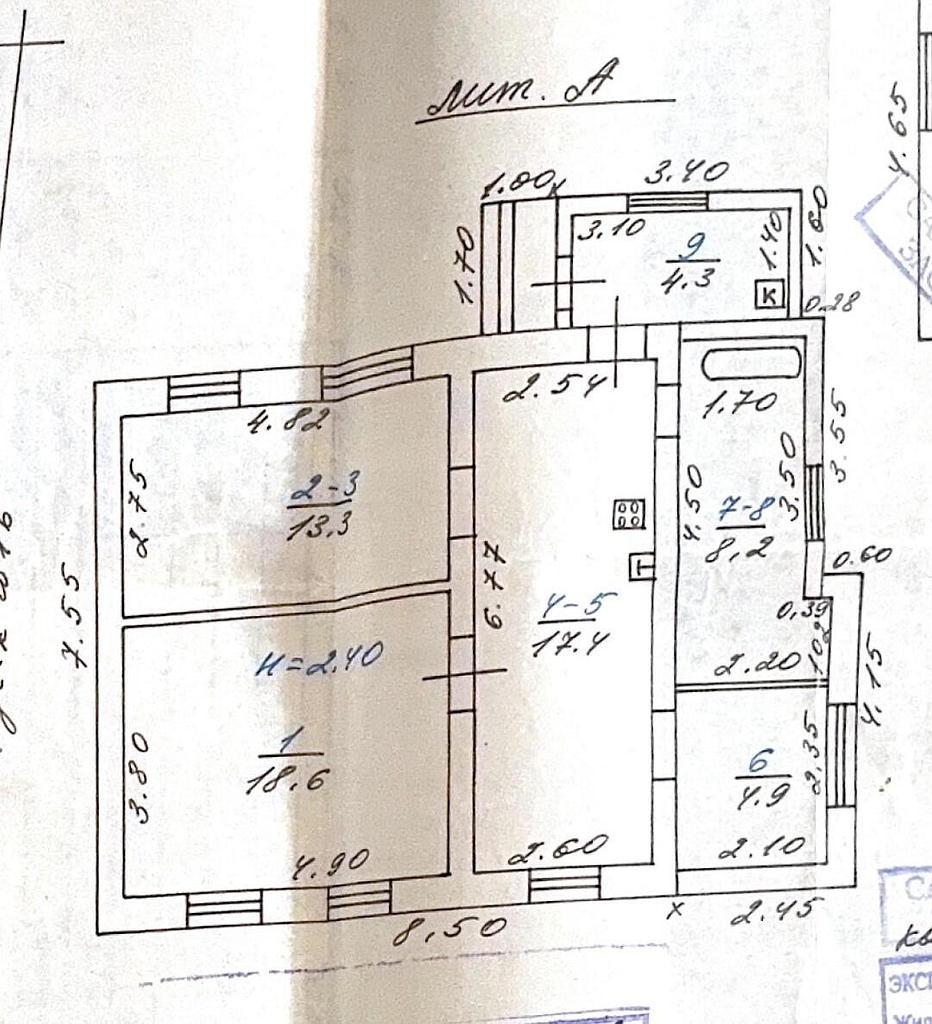 лит. А
4.65
1.00
к
3.40
1.70
3.10
9
4.3
1.40
1.60
К
0.28
4.82
2.54
1.70
2.75
2-3
13.3
4.50
7-8
8,2
3.50
3.55
6.77
Т
4-5
17.4
0.60
0,39
7.55
Н=2.40
2.20
1.02
4.15
3.80
1
18.6
6
4.9
2,35
4.90
2.60
2.10
8,50
х
2.45
ЭКСП